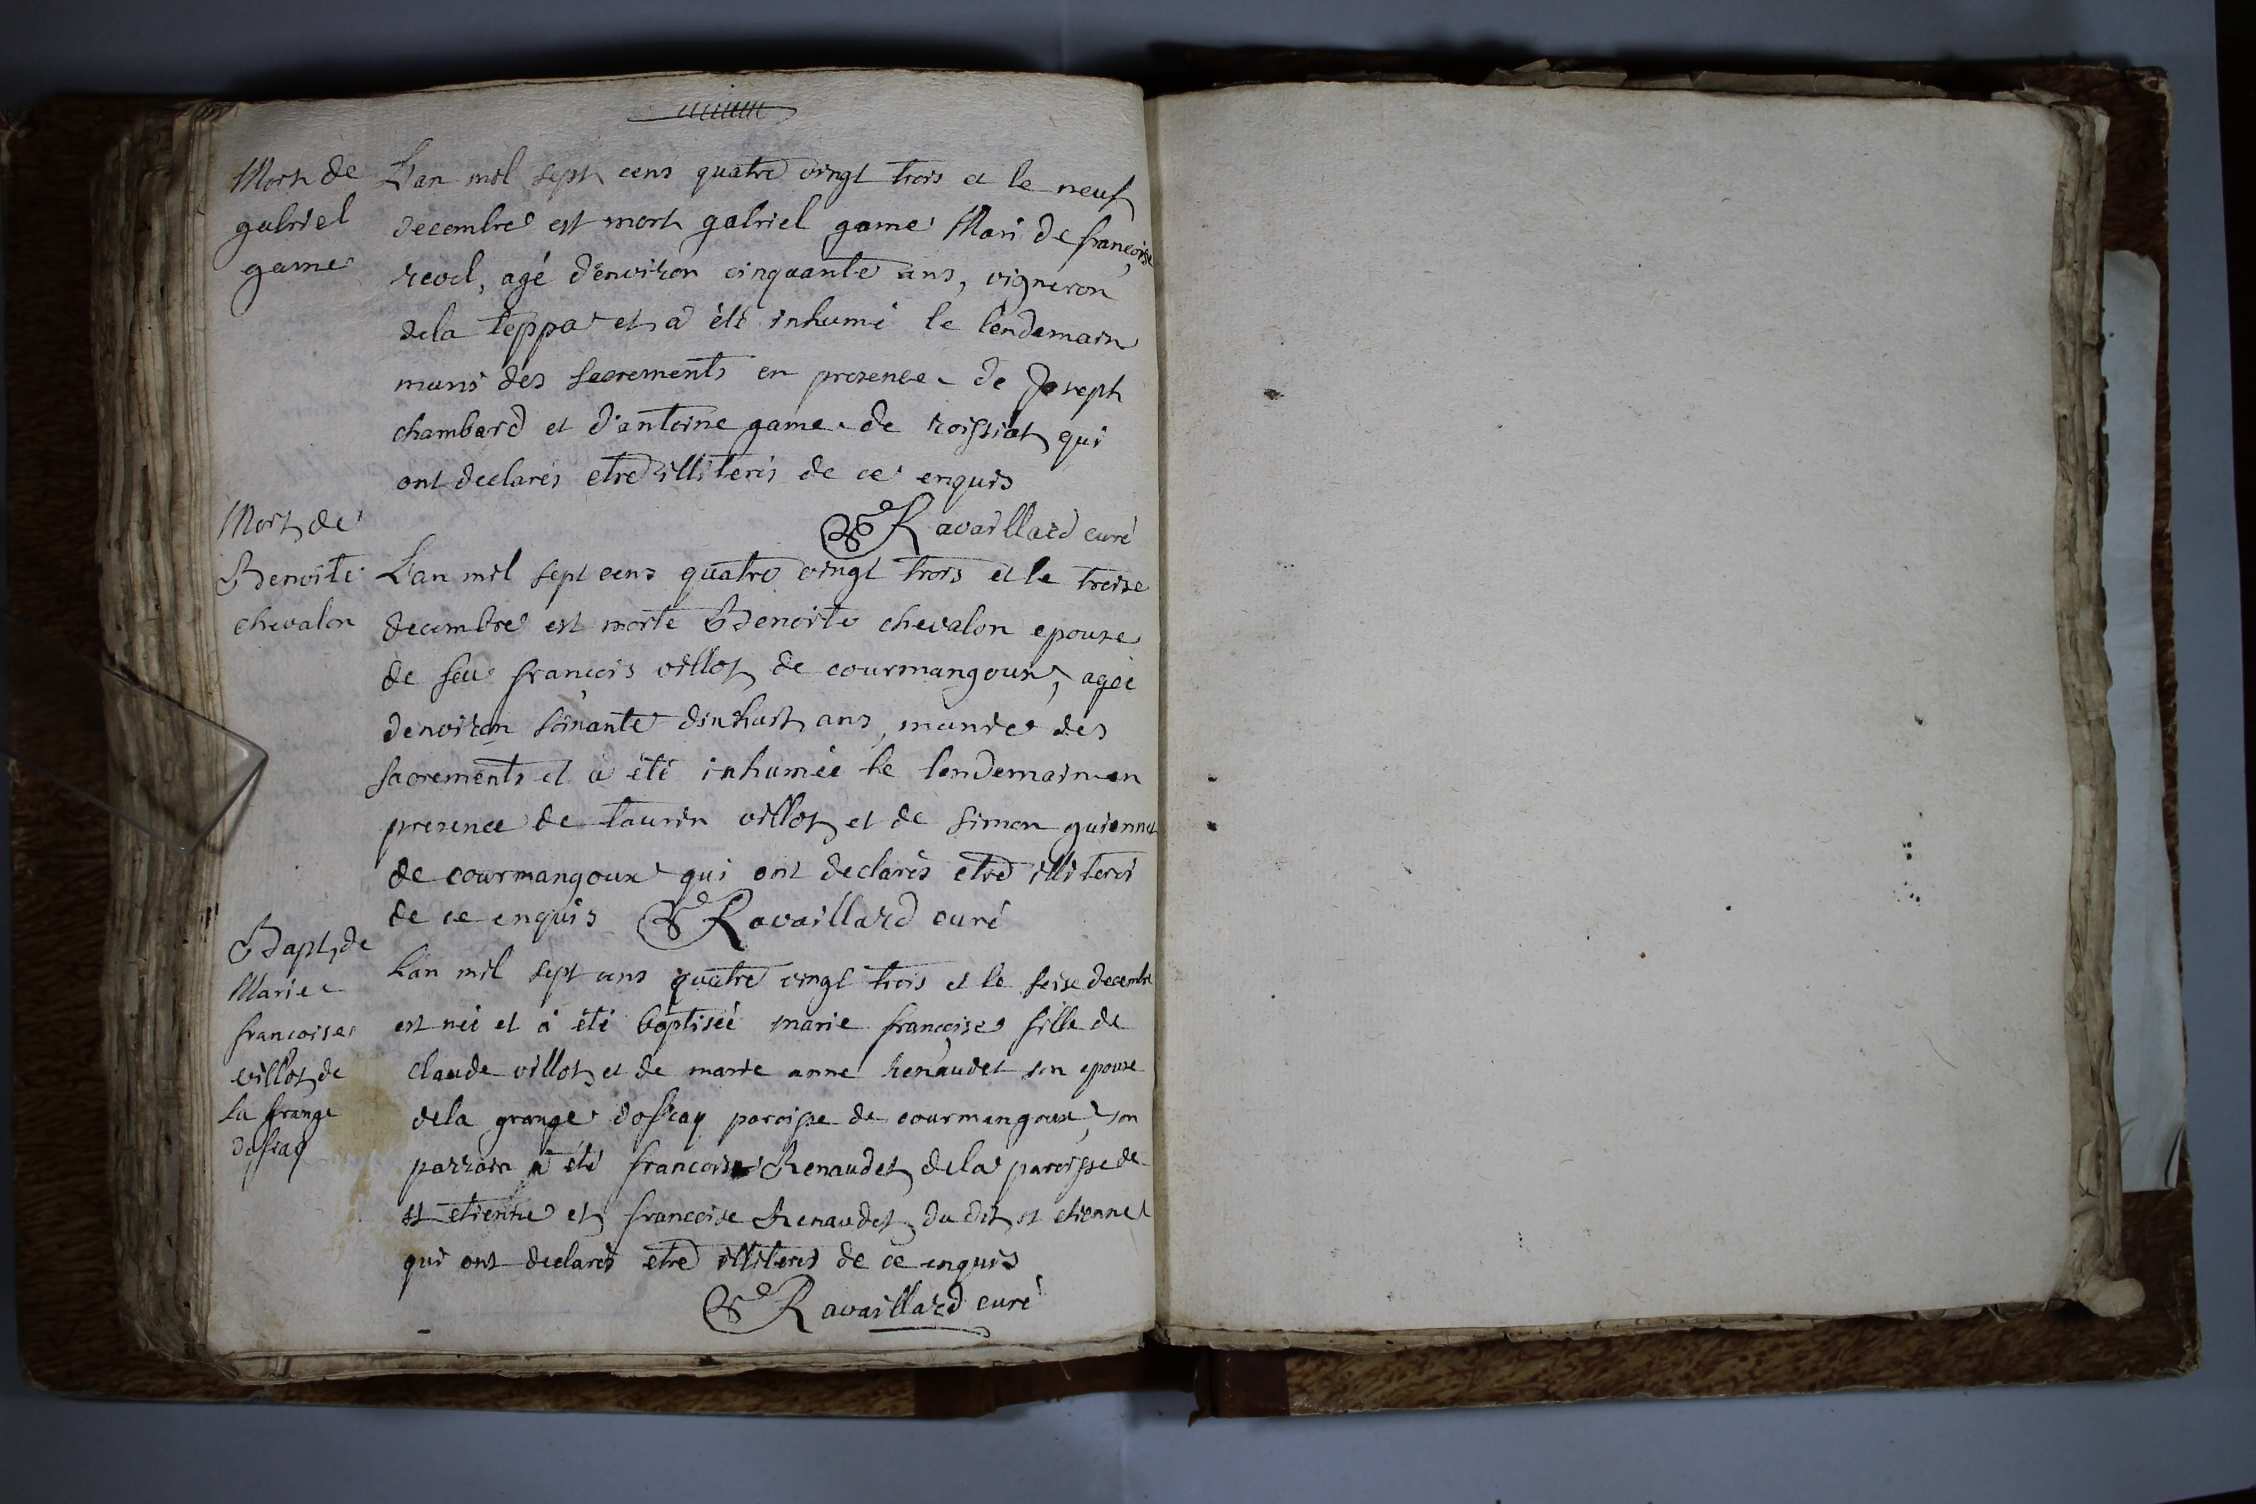 Mort de
gabriel
game
L'an mil sept cens quatre vingt trois et le neuf
decembre est mort gabriel game Mari de françoise
revel, agé d'environ cinquante ans, vigneron
dela teppa et a été inhumé le lendemain
muni des sacrements en presence de Joseph
chambard et d'antoine game de roissiat qui
ont declarés etre illiterés de ce enquis
Ravaillard curé
Mort de
Benoite
chevalon
L'an mil sept cens quatre vingt trois et le treise
decembre est morte Benoite chevalon epouse
de feu françois villot de courmangoux, agée
denviron soixante dix huit ans, munie des
sacrements et a été inhumée le lendemain en
presence de taurin villot et de simon guionnet
de courmangoux qui ont declarés etre illiterés
de ce enquis Ravaillard curé
Bapt, de
Marie
francoise
villot de
la grange
dasfay
L'an mil sept cens quatre vingt trois et le seise decembre
est née et a été baptisée marie françoise fille de
claude villot et de marie anne Renaudet son epouse
dela grange paroisse de courmangoux, son
parrain a été francois Renaudet dela paroisse de
st etienne et francoise Renaudet du dit st etienne
qui ont declarés etre illiterés de ce enquis
Ravaillard curé